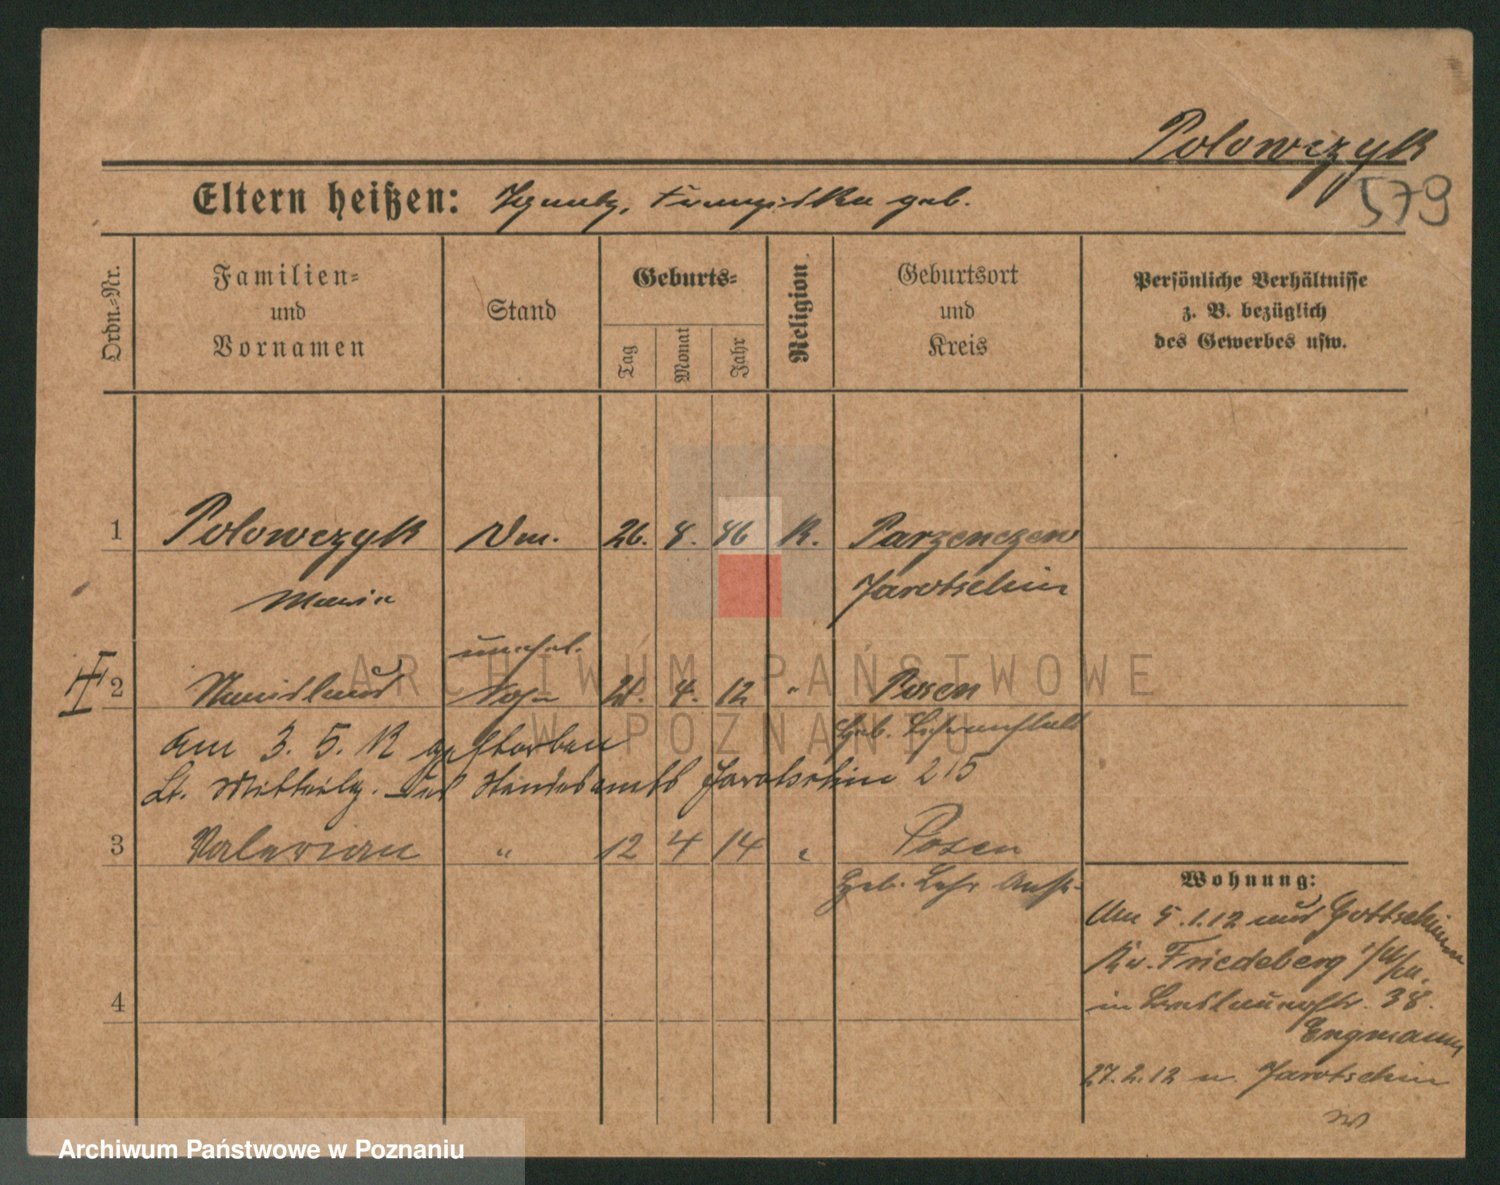 Polowczyk
579
Eltern heißen: Ignatz, Franziska geb.
Ordn.-Nr.
Familien-
und
Vornamen
Stand
Geburts-
Tag
Monat
Jahr
Religion
Geburtsort
und
Kreis
Persönliche Verhältnisse
z. B. bezüglich
des Gewerbes usw.
1 Polowczyk 26. 8. 86 K. Parzenczew
Maria Jarotschin
unehel.
2 Stanislaus Sohn 21. 4. 12 " Posen
Am 3. 5. 12 gestorben
Geb. Lehranstalt
Lt. Mitteilg. des Standesamts Jarotschin 215
3 Valerian " 12 4 14 " Posen
Geb. Lehr Anst.
Wohnung:
Am 5.1.12 aus Gottschimm
Kr. Friedeberg
in Breslauerstr. 38.
Engmann
4
27.2.12 n. Jarotschin
ARCHIWUM PAŃSTWOWE
W POZNANIU
Archiwum Państwowe w Poznaniu